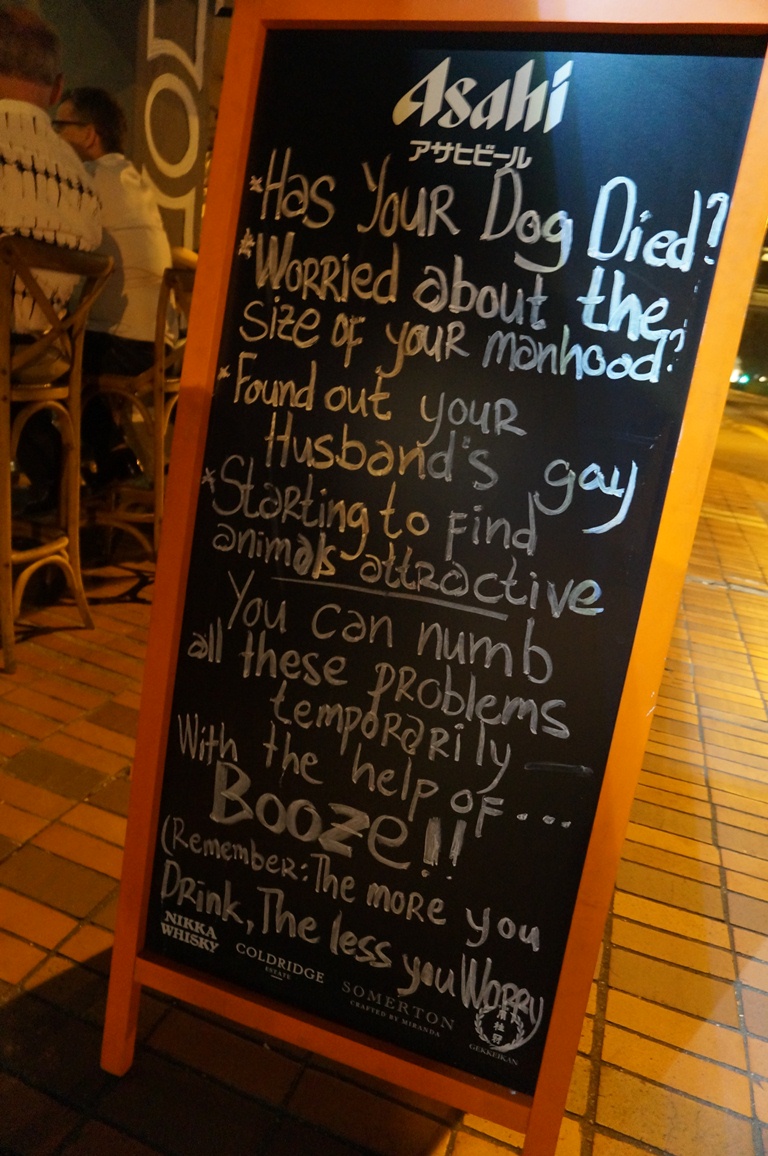 Asahi
アサヒビール
*Has YOUR Dog Died?
*WORRied about the
size of youR manhood?
*Found out youR
Husband's gay
*StaRting to Find
animals attRactive
You can numb
all these PRoblems
tempoRaRily
With the help oF...
BOOZe!!
(RemembeR: The moRe you
DRink, The less you WoRRy
NIKKA
WHISKY
COLDRIDGE
ESTATE
SOMERTON
CRAFTED BY MIRANDA
GEKKEIKAN